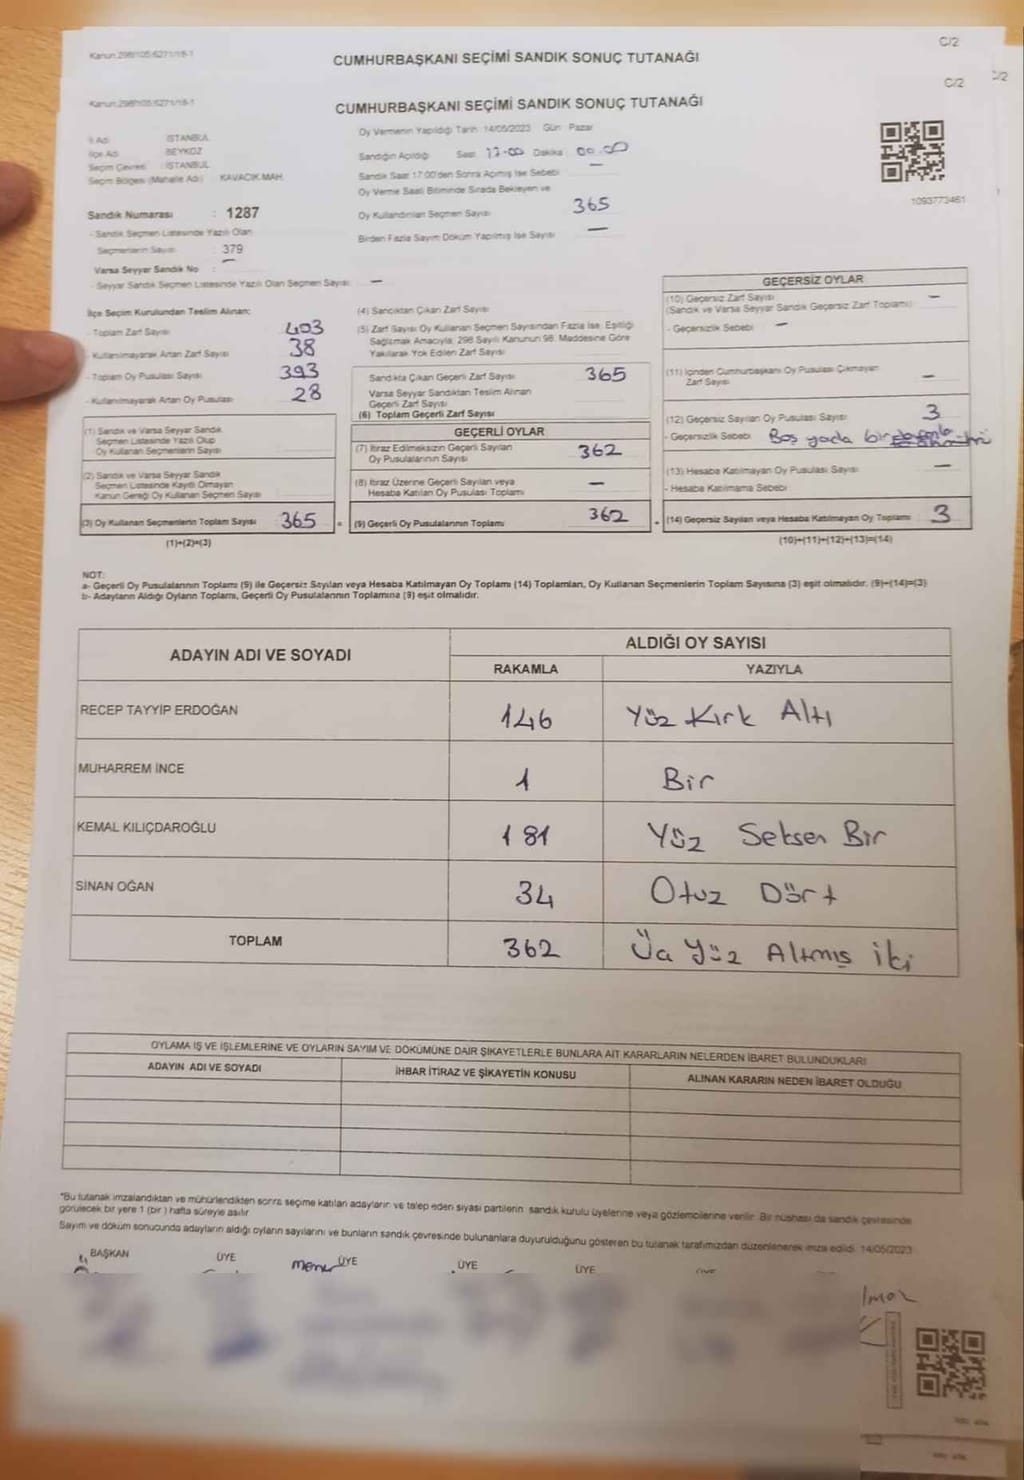 Kanun:298/105;6271/18-1
C/2
CUMHURBAŞKANI SEÇİMİ SANDIK SONUÇ TUTANAĞI
C/2
Kanun:298/105;6271/18-1
C/2
CUMHURBAŞKANI SEÇİMİ SANDIK SONUÇ TUTANAĞI
İl Adı : İSTANBUL
İlçe Adı : BEYKOZ
Seçim Çevresi : İSTANBUL
Seçim Bölgesi (Mahalle Adı) : KAVACIK MAH.
Sandık Numarası : 1287
- Sandık Seçmen Listesinde Yazılı Olan
Seçmenlerin Sayısı : 379
Varsa Seyyar Sandık No : —
- Seyyar Sandık Seçmen Listesinde Yazılı Olan Seçmen Sayısı : —
Oy Vermenin Yapıldığı Tarih 14/05/2023 Gün Pazar
Sandığın Açıldığı Saat 17:00 Dakika 00.00
Sandık Saat 17.00'den Sonra Açılmış İse Sebebi —
Oy Verme Saati Bitiminde Sırada Bekleyen ve
Oy Kullandırılan Seçmen Sayısı 365
Birden Fazla Sayım Döküm Yapılmış İse Sayısı —
1093773461
İlçe Seçim Kurulundan Teslim Alınan:
- Toplam Zarf Sayısı 403
- Kullanılmayarak Artan Zarf Sayısı 38
- Toplam Oy Pusulası Sayısı 393
- Kullanılmayarak Artan Oy Pusulası 28
(1) Sandık ve Varsa Seyyar Sandık
Seçmen Listesinde Yazılı Olup
Oy Kullanan Seçmenlerin Sayısı
(2) Sandık ve Varsa Seyyar Sandık
Seçmen Listesinde Kayıtlı Olmayan
Kanun Gereği Oy Kullanan Seçmen Sayısı
(3) Oy Kullanan Seçmenlerin Toplam Sayısı 365
(1)+(2)=(3)
(4) Sandıktan Çıkan Zarf Sayısı
(5) Zarf Sayısı Oy Kullanan Seçmen Sayısından Fazla İse, Eşitliği
Sağlamak Amacıyla, 298 Sayılı Kanunun 98. Maddesine Göre
Yakılarak Yok Edilen Zarf Sayısı
Sandıkta Çıkan Geçerli Zarf Sayısı 365
Varsa Seyyar Sandıktan Teslim Alınan
Geçerli Zarf Sayısı
(6) Toplam Geçerli Zarf Sayısı
GEÇERLİ OYLAR
(7) İtiraz Edilmeksizin Geçerli Sayılan
Oy Pusulalarının Sayısı 362
(8) İtiraz Üzerine Geçerli Sayılan veya
Hesaba Katılan Oy Pusulası Toplamı —
(9) Geçerli Oy Pusulalarının Toplamı 362
GEÇERSİZ OYLAR
(10) Geçersiz Zarf Sayısı —
(Sandık ve Varsa Seyyar Sandık Geçersiz Zarf Toplamı)
- Geçersizlik Sebebi —
(11) İçinden Cumhurbaşkanı Oy Pusulası Çıkmayan
Zarf Sayısı —
(12) Geçersiz Sayılan Oy Pusulası Sayısı 3
- Geçersizlik Sebebi Boş yada birden
(13) Hesaba Katılmayan Oy Pusulası Sayısı —
- Hesaba Katılmama Sebebi
(14) Geçersiz Sayılan veya Hesaba Katılmayan Oy Toplamı 3
(10)+(11)+(12)+(13)=(14)
NOT:
a- Geçerli Oy Pusulalarının Toplamı (9) ile Geçersiz Sayılan veya Hesaba Katılmayan Oy Toplamı (14) Toplamları, Oy Kullanan Seçmenlerin Toplam Sayısına (3) eşit olmalıdır. (9)+(14)=(3)
b- Adayların Aldığı Oyların Toplamı, Geçerli Oy Pusulalarının Toplamına (9) eşit olmalıdır.
ADAYIN ADI VE SOYADI
ALDIĞI OY SAYISI
RAKAMLA YAZIYLA
RECEP TAYYİP ERDOĞAN 146 Yüz Kırk Altı
MUHARREM İNCE 1 Bir
KEMAL KILIÇDAROĞLU 181 Yüz Seksen Bir
SİNAN OĞAN 34 Otuz Dört
TOPLAM 362 Üç Yüz Altmış İki
OYLAMA İŞ VE İŞLEMLERİNE VE OYLARIN SAYIM VE DÖKÜMÜNE DAİR ŞİKAYETLERLE BUNLARA AİT KARARLARIN NELERDEN İBARET BULUNDUKLARI
ADAYIN ADI VE SOYADI İHBAR İTİRAZ VE ŞİKAYETİN KONUSU ALINAN KARARIN NEDEN İBARET OLDUĞU
*Bu tutanak imzalandıktan ve mühürlendikten sonra seçime katılan adayların ve talep eden siyasi partilerin sandık kurulu üyelerine veya gözlemcilerine verilir. Bir nüshası da sandık çevresinde
görülecek bir yere 1 (bir) hafta süreyle asılır
Sayım ve döküm sonucunda adayların aldığı oyların sayılarını ve bunların sandık çevresinde bulunanlara duyurulduğunu gösteren bu tutanak tarafımızdan düzenlenerek imza edildi. 14/05/2023
BAŞKAN ÜYE ÜYE ÜYE ÜYE